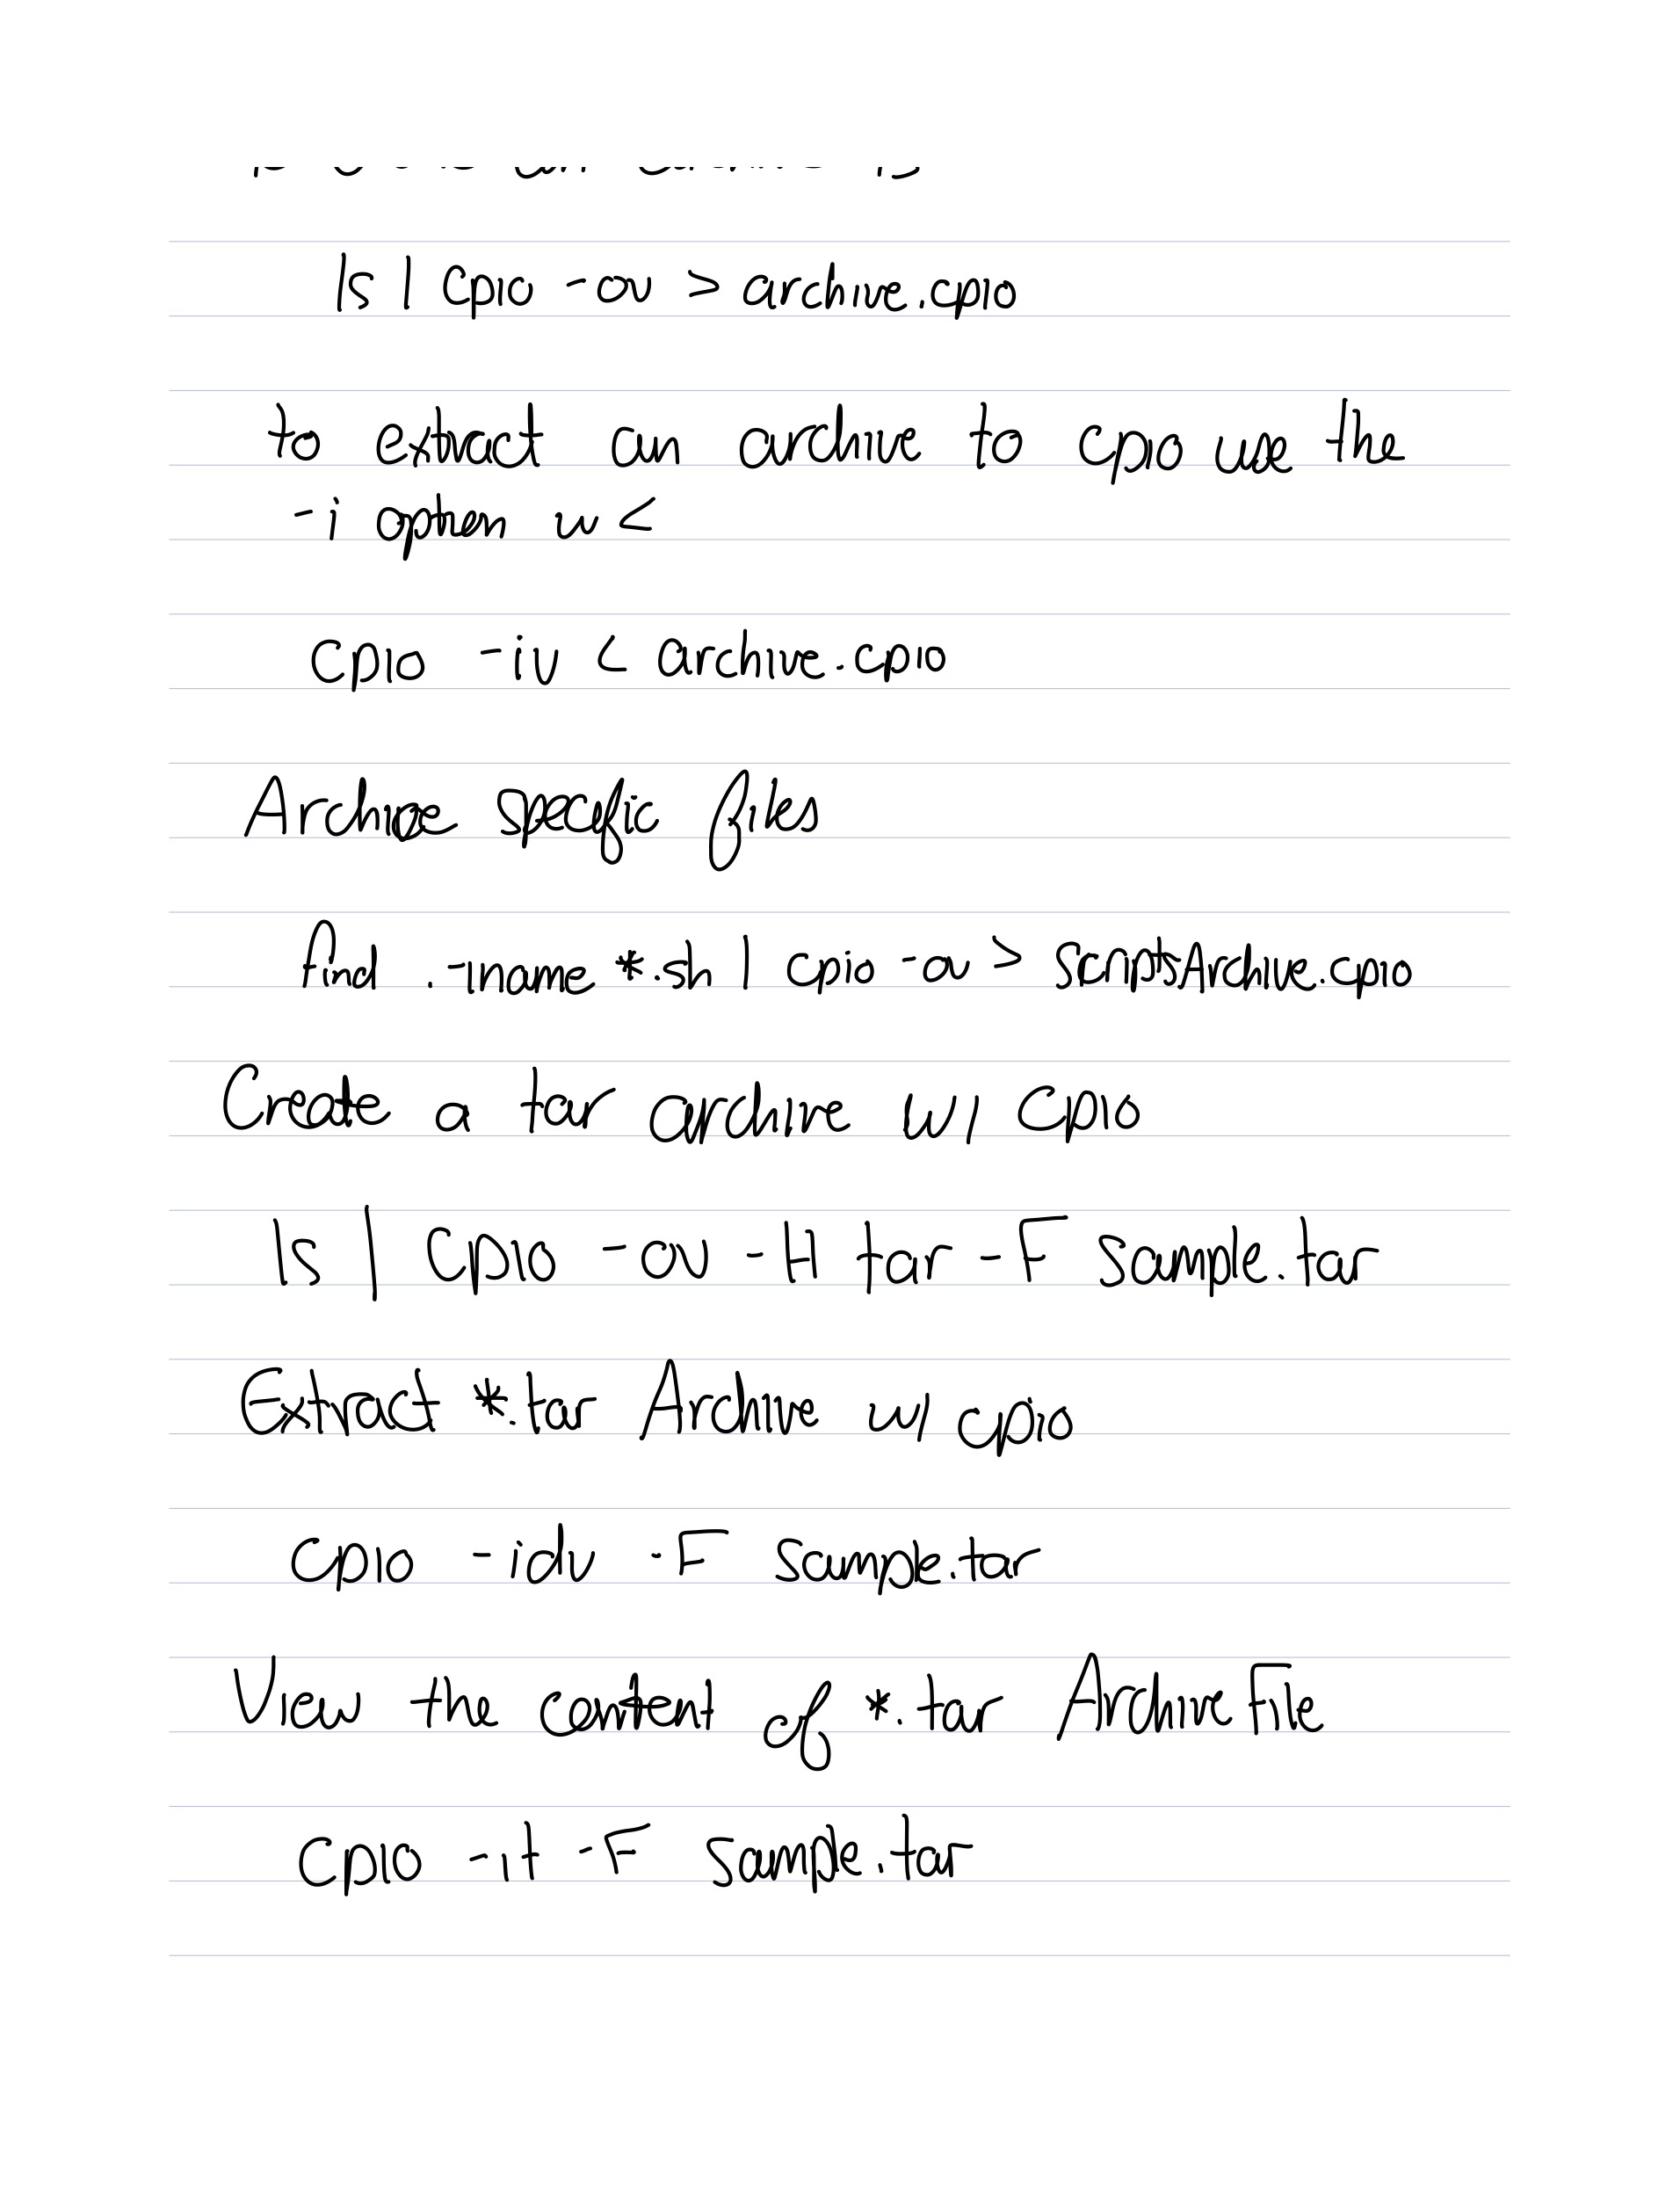 ls | cpio -ov > archive.cpio
to extract an archive to cpo use the
-i option w <
cpio -iv < archive.cpio
Archive specific files
find . -iname *.sh | cpio -ov > scriptArchive.cpio
Create a tar archive w/ cpio
ls | cpio -ov -H tar -F sample.tar
Extract *.tar Archive w/ cpio
cpio -idv -F sample.tar
View the content of *.tar Archive File
cpio -it -F sample.tar